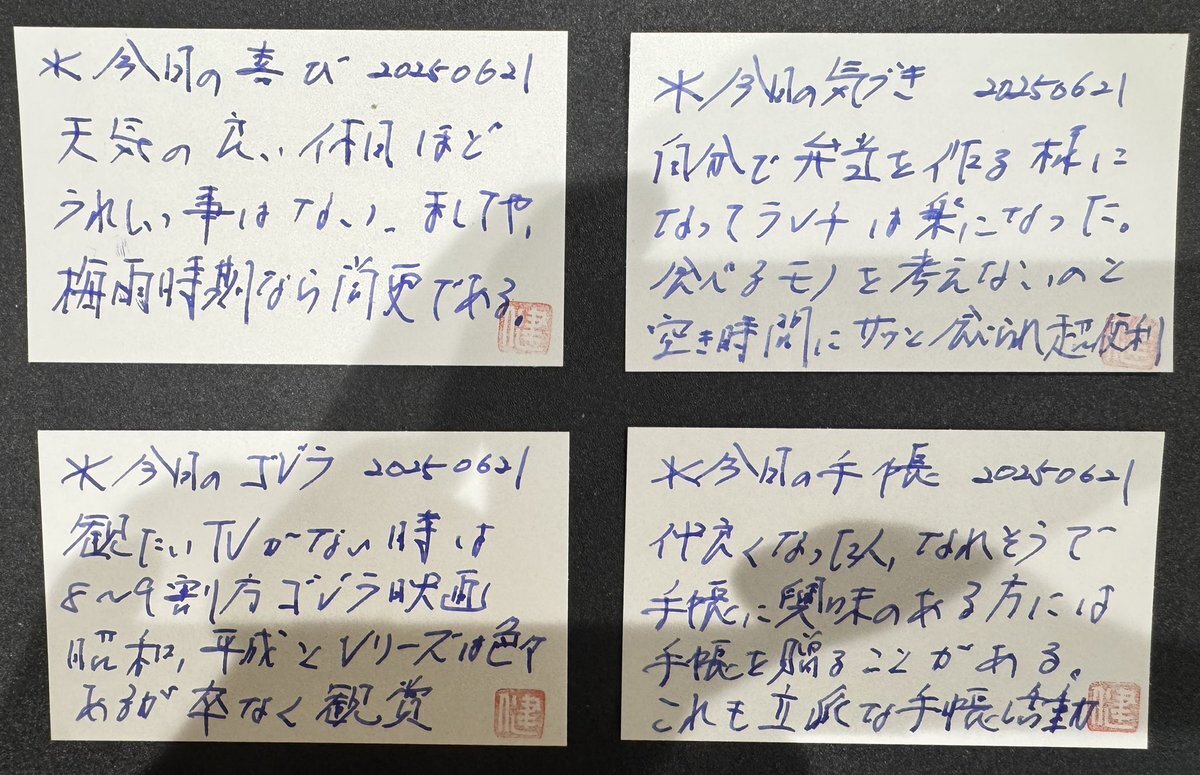 * 今日の喜び 20250621
天気の良い休日ほど
うれしい事はない、ましてや、
梅雨時期なら尚更である。
健
* 今日の気づき 20250621
自分で弁当を作る様に
なってランチは楽になった。
食べるモノを考えないのと
空き時間にサッと食べられ超便利
健
* 今日のゴジラ 20250621
観たいTVがない時は
8〜9割方ゴジラ映画
昭和、平成とシリーズは色々
あるが卒なく観賞
健
* 今日の手帳 20250621
仲良くなった人、なれそうで
手帳に興味のある方には
手帳を贈ることがある。
これも立派な手帳活動
健